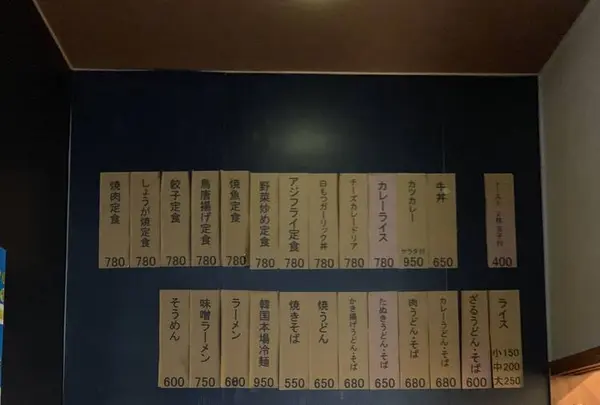 牛丼 650
カツカレー サラダ付 950
カレーライス 780
チーズカレードリア 780
白もつガーリック丼 780
アジフライ定食 780
野菜炒め定食 780
焼魚定食 780
鳥唐揚げ定食 780
餃子定食 780
しょうが焼定食 780
焼肉定食 780
400
ライス 小150 中200 大250
ざるうどん・そば 600
カレーうどん・そば 680
肉うどん・そば 680
たぬきうどん・そば 650
かき揚げうどん・そば 680
焼うどん 650
焼きそば 550
韓国本場冷麺 950
ラーメン 600
味噌ラーメン 750
そうめん 600